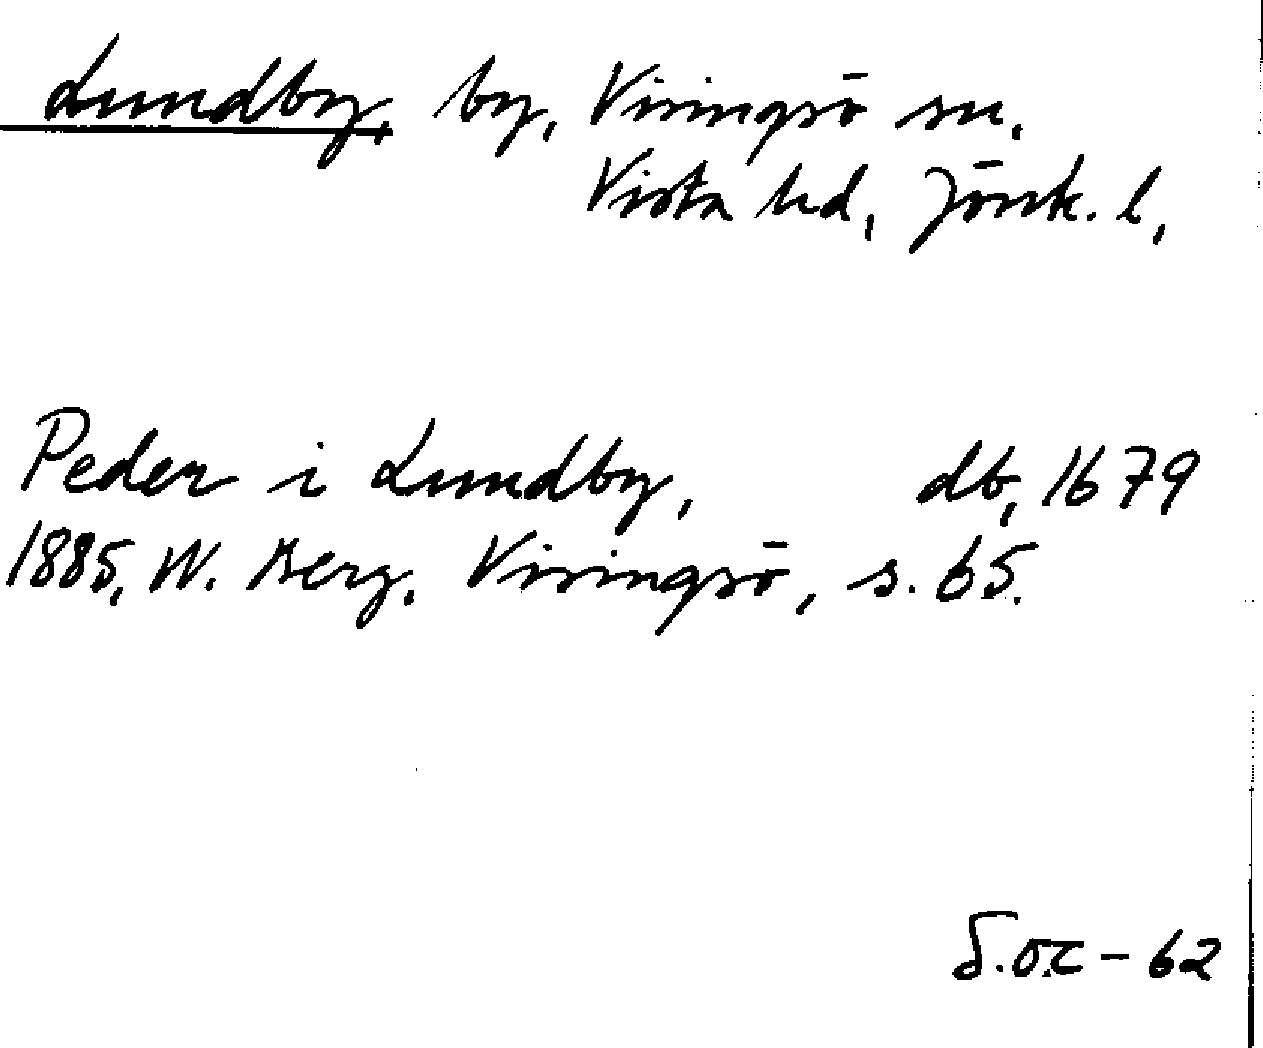 Lundby, by, Visingsö sn.
Vista hd, Jönk. l,
Peder i Lundby, db, 1679
1885, W. Berg. Visingsö, s. 65.
S.O.C - 62